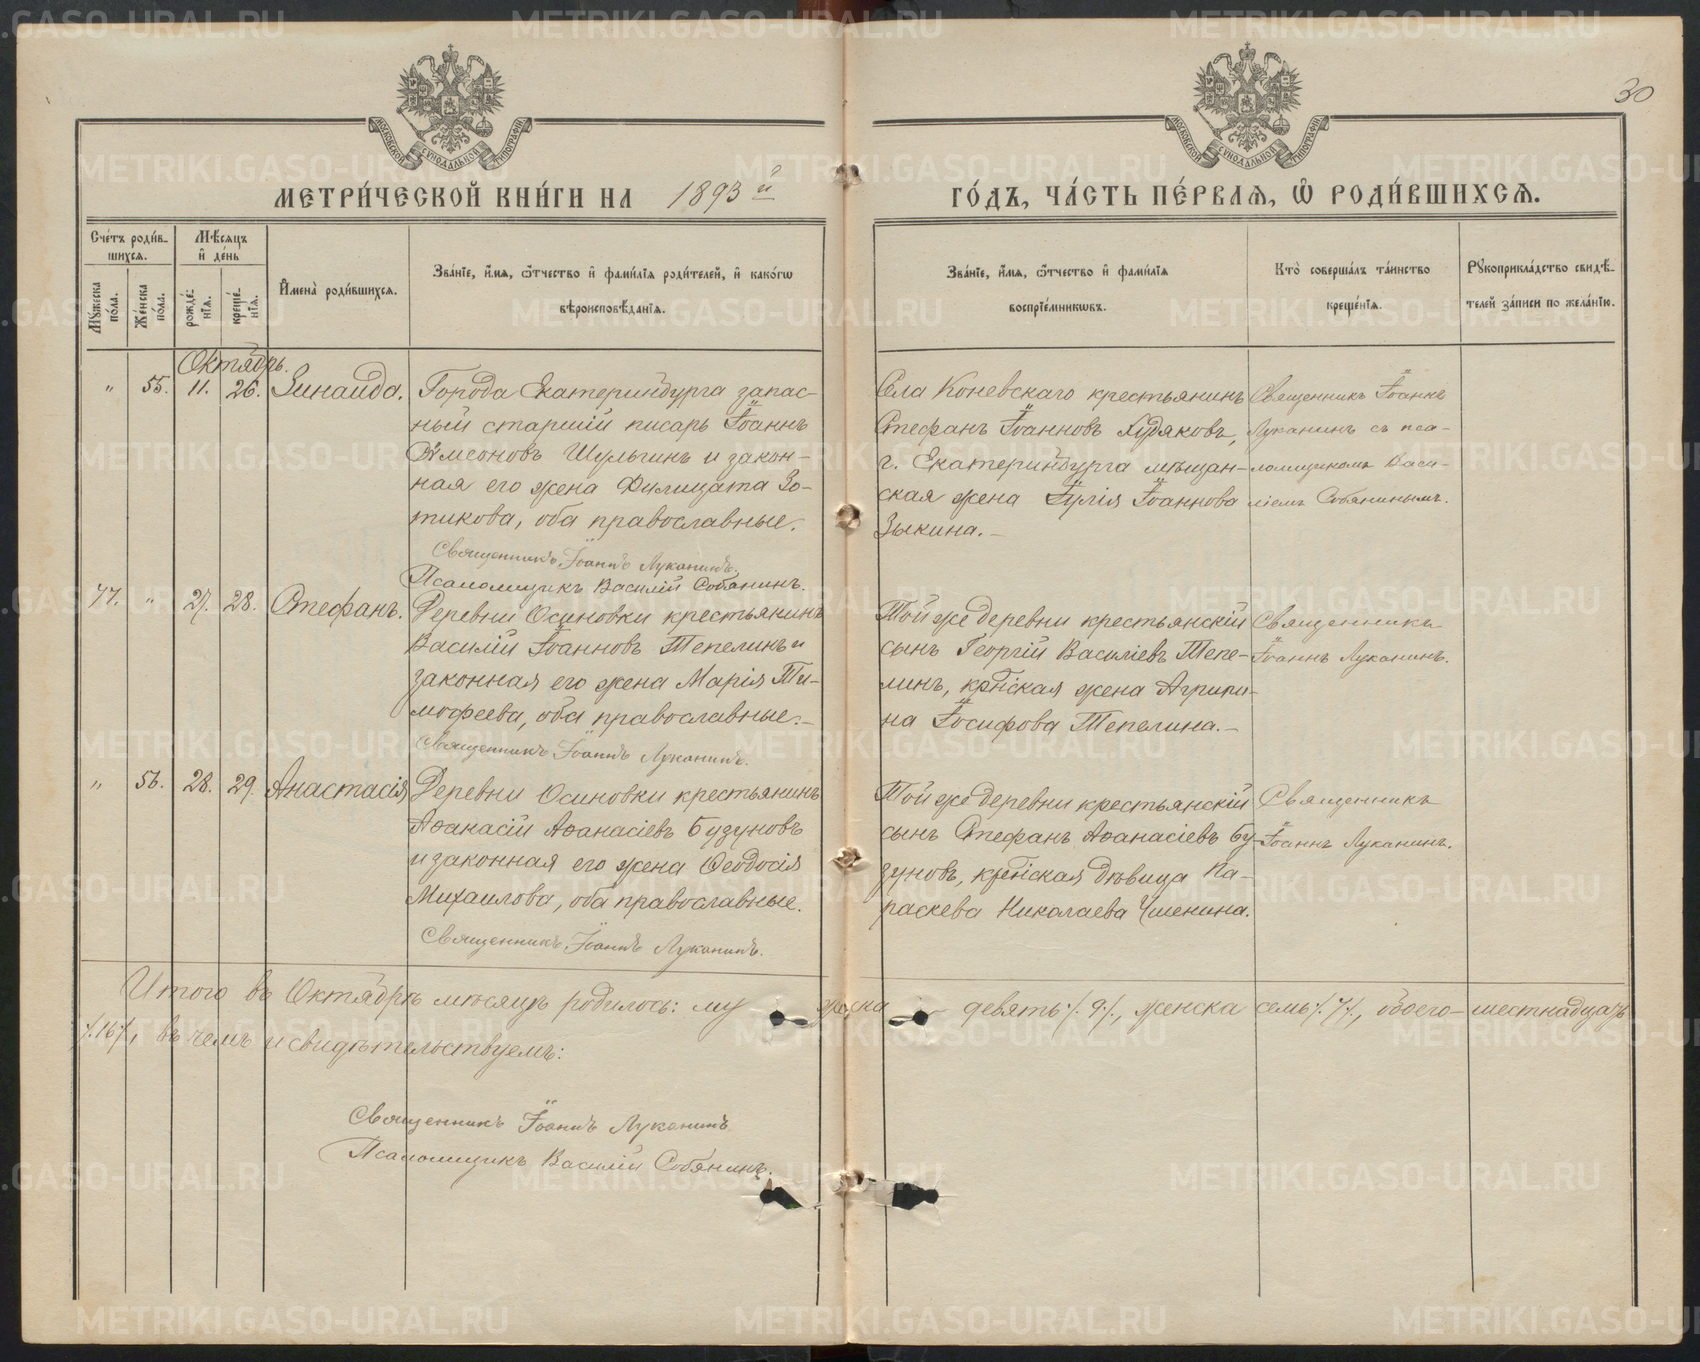 30
МОСКОВСКОЙ СѴНОДАЛЬНОЙ ТИПОГРАФІИ
МОСКОВСКОЙ СѴНОДАЛЬНОЙ ТИПОГРАФІИ
МЕТРИ́ЧЕСКОЙ КНИ́ГИ НА 1893й
ГО́ДЪ, ЧА́СТЬ ПЕ́РВАѦ, Ѽ РОДИ́ВШИХСѦ.
Сче́тъ роди́в-
шихсѧ.
Мꙋ́жеска по́ла.
Же́нска по́ла.
Мѣ́сяцъ
и҆ де́нь
рожде́-
нїѧ.
креще́-
нїѧ.
И҆мена̀ роди́вшихсѧ.
Зва́нїе, и҆́мѧ, ѻ҆́тчество и҆ фами́лїѧ роди́телей, и҆ како́гѡ
вѣроисповѣ́данїѧ.
Зва́нїе, и҆́мѧ, ѻ҆́тчество и҆ фами́лїѧ
воспрїе́мникѡвъ.
Кто̀ соверша́лъ та́инство
креще́нїѧ.
Рꙋкоприкла́дство свидѣ́-
телей за́писи по жела́нїю.
Октябрь.
" 55. 11. 26. Зинаида.
Города Екатеринбурга запас-
ный старшій писарь Іоаннъ
Сѵмеоновъ Шульгинъ и закон-
ная его жена Филицата Зо-
тикова, оба православные.
Священникъ Іоаннъ Луканинъ.
Псаломщикъ Василій Собянинъ.
Села Коневскаго крестьянинъ
Стефанъ Іоанновъ Худяковъ,
г. Екатеринбурга мѣщан-
ская жена Іулія Іоаннова
Зыкина.—
Священникъ Іоаннъ
Луканинъ съ пса-
ломщикомъ Васи-
ліемъ Собянинымъ.
77. " 27. 28. Стефанъ.
Деревни Осиновки крестьянинъ
Василій Іоанновъ Тепелинъ и
законная его жена Марія Ти-
мофеева, оба православные.—
Священникъ Іоаннъ Луканинъ.
Той же деревни крестьянскій
сынъ Георгій Василіевъ Тепе-
линъ, крѣпская жена Агрипи-
на Іосифова Тепелина.—
Священникъ
Іоаннъ Луканинъ.
" 56. 28. 29. Анастасія
Деревни Осиновки крестьянинъ
Аѳанасій Аѳанасіевъ Бузуновъ
и законная его жена Ѳеодосія
Михаилова, оба православные.
Священникъ Іоаннъ Луканинъ.
Той же деревни крестьянскій
сынъ Стефанъ Аѳанасіевъ Бу-
зуновъ, дѣвица Па-
раскева Николаева
Священникъ
Іоаннъ Луканинъ.
Итого въ Октябрѣ мѣсяцѣ родилось: му жска девять ⁒9⁒, женска семь ⁒7⁒, обоего— шестнадцать
⁒16⁒, въ чемъ и свидѣтельствуемъ:
Священникъ Іоаннъ Луканинъ
Псаломщикъ Василій Собянинъ.
METRIKI.GASO-URAL.RU